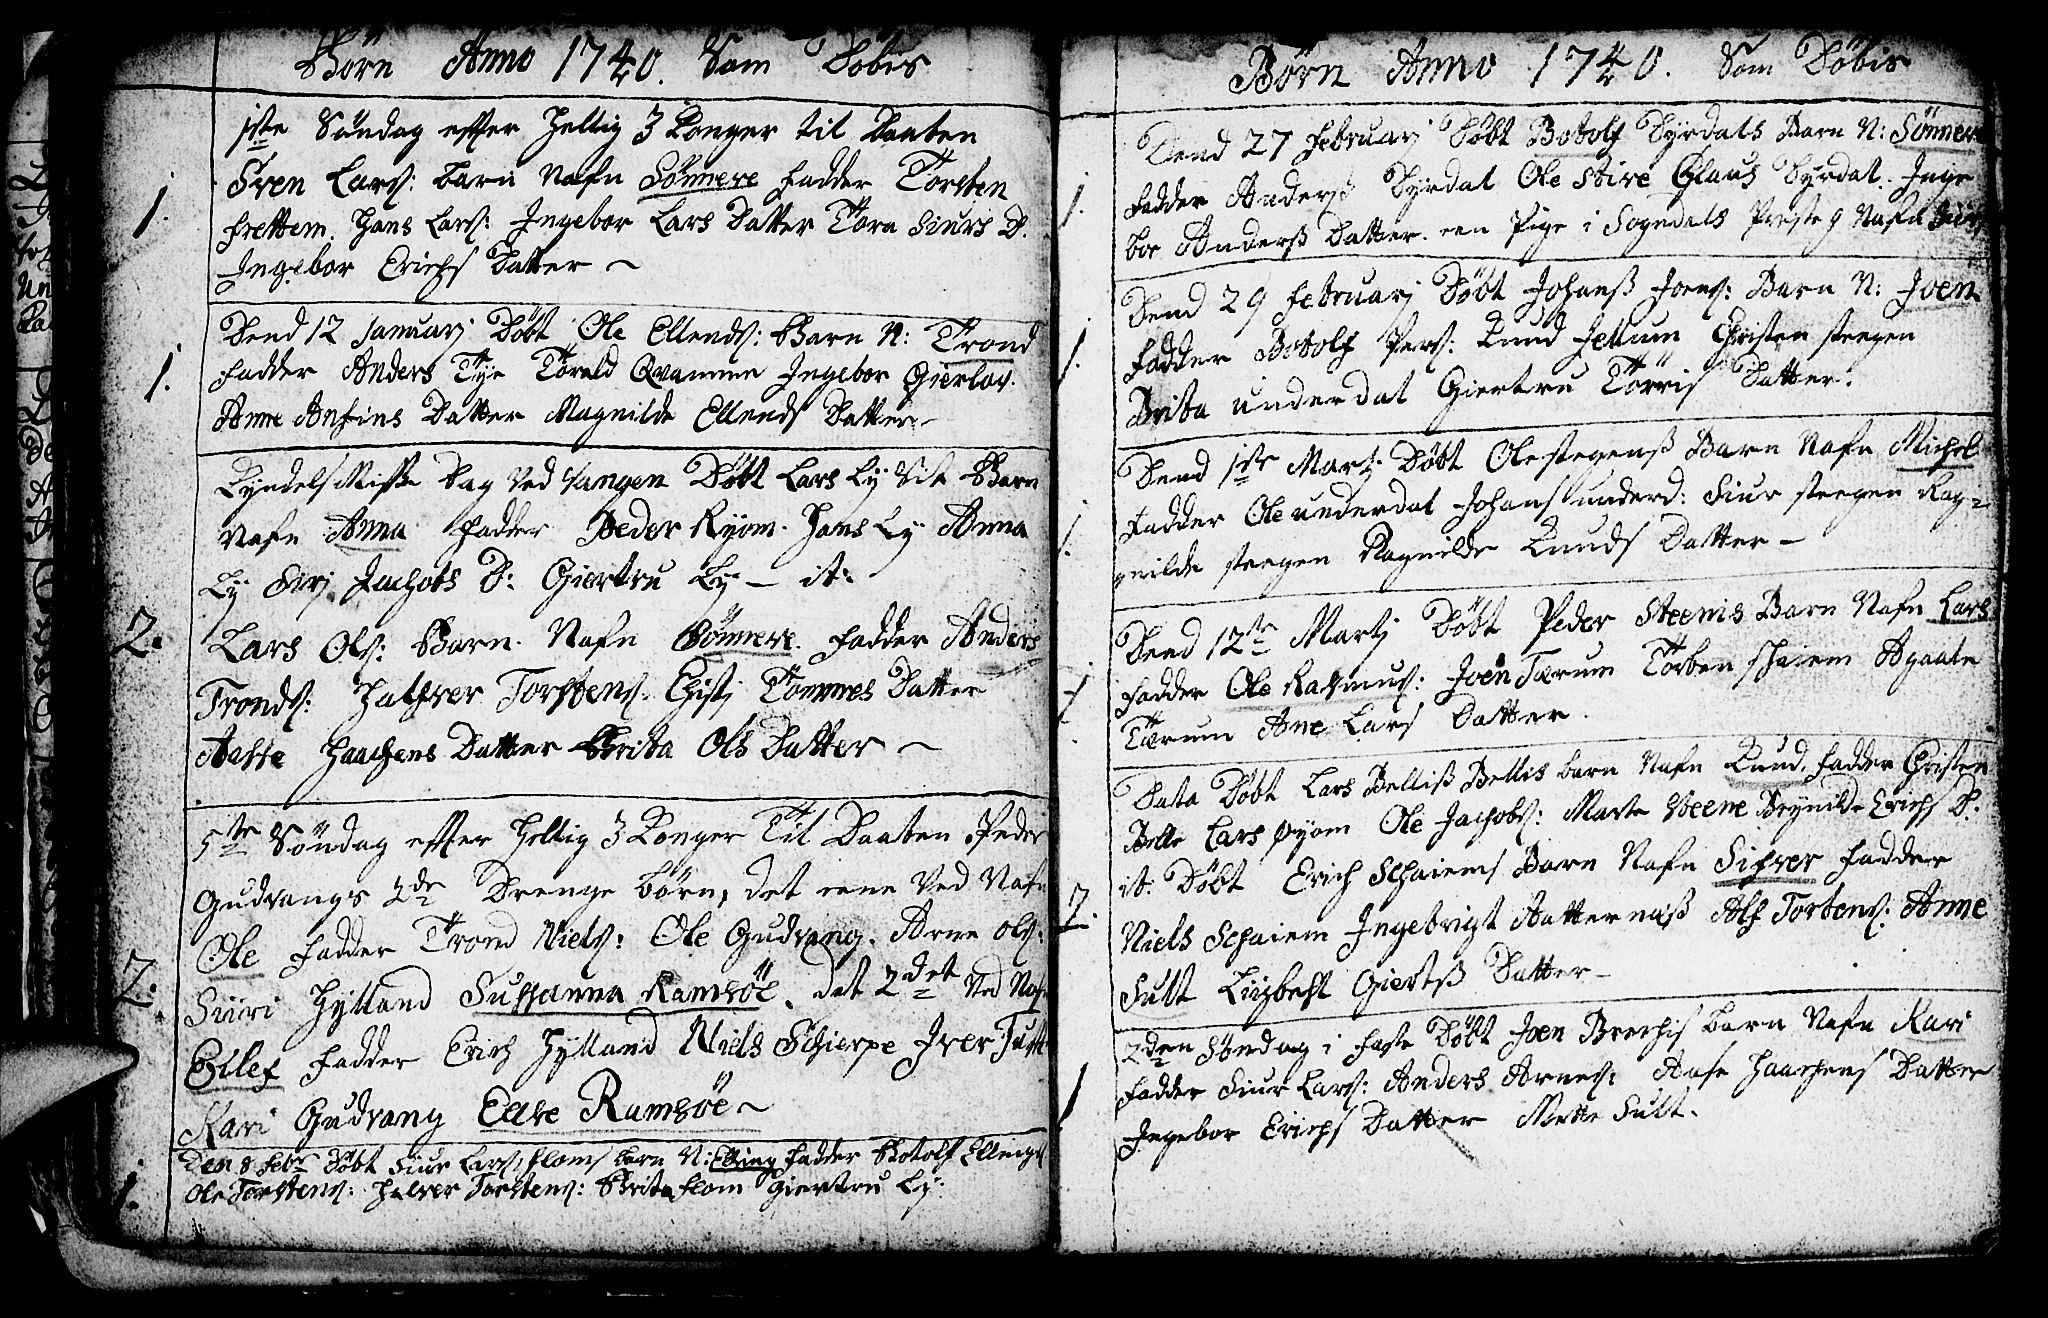 Börn Anno 1740. Som Döbis
1ste Söndag effter Hellig 3 Konger til Baaten
Sven Lars: barn Nafn Sönneve fadder Torsten
1.
frettem. Hans Lars: Ingebor Lars Datter Tora Siurs D.
Ingebor Erichs Datter ~
Dend 12 Januarj Döbt Ole Ellends: Barn N: Trond
1.
fadder Anders Tye Torald Qvamme Ingebor Gierlov.
Anne Anfins Datter Magnilde Ellends Datter ~
Kyndels Misse Dag Ved Vangen Döbt Lars Ly Barn
Nafn Anna fadder Peder Ryom. Hans Ly Anna
Ly Siri Jachobs D: Giertru Ly - it:
2.
Lars Ols: Barn. Nafn Sönneve. fadder Anders
Tronds: Halfver Torstens: Christj Tommes Datter
Aasse Haachens Datter Brita Ols Datter ~
5te Söndag effter Hellig 3 Konger Til Baaten Peder
Gudvangs 2de Drenge börn, det eene Ved Nafn
Ole fadder Trond Niels: Ole Gudvang. Arne Ols:
2.
Siiri Hylland Sussanna Ramsöe. det 2det Ved Nafn
Eilef fadder Erich Hylland Niels Schierpe Iver Tuft
Kari Gudvang Else Ramsöe ~
Den 8 febr Döbt Siur Lars: floms barn N: Elling fadder Botolf Ellings
1.
Ole Torstens: Halver Torstens: Brita flom Giertru Ly.
Börn Anno 1740. Som Döbis
Dend 27 Februarj Döbt Botolf Dyrdals Barn N: Sönneve
1.
fadder Anderss Dyrdal Ole Stive Claus Dyrdal. Inge
bor Anderss Datter. een Pige i Sogndals Preste g Nafn Siri
Dend 29 Februarj Döbt Johanss Joens: Barn N: Joen
1.
fadder Botolf Pers: Knud Jellum Christen steegen
Brita underdal Giertru Törris Datter.
Dend 1ste Martj. Döbt Ole stegenss Barn Nafn Michel
1.
fadder Ole underdal Johans underd: Siur steegen Rag=
nilde steegen Ragnilde Knuds Datter -
Dend 12te Martj Döbt Peder Steenis Barn Nafn Lars
1.
fadder Ole Rasmus: Joen Tærum Torben schaiem Agaate
Tærum Ane Lars Datter.
Data Döbt Lars Belliss Bellis barn Nafn Knud, fadder Christen
Belle Lars öyom Ole Jachobs: Marte Steene Brynilde Erichs D:
it: Döbt Erich Schaiems Barn Nafn Sifver fadder
2.
Niels Schaiem Ingebrigt Aatternæss Alf Torbens: Anne
Fult Lizbeht Giertss Datter -
2den Söndag i Faste Döbt Joen Brechis barn Nafn Kari
1
fadder Siur Lars: Anders Arnes: Aase Haachens Datter
Ingebor Erichs Datter Mette Fult.